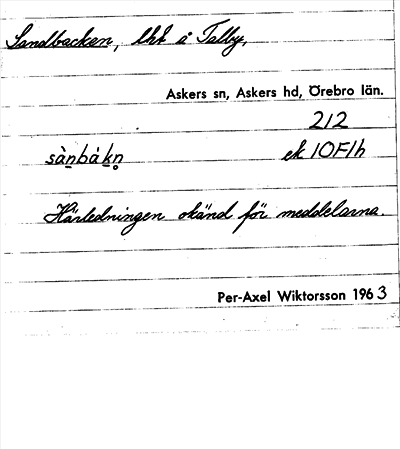 Sandbacken, lht å Talby,
Askers sn, Askers hd, Örebro län.
212
sànbákn̥ ek 10F1h
Härledningen okänd för meddelarna.
Per-Axel Wiktorsson 1963